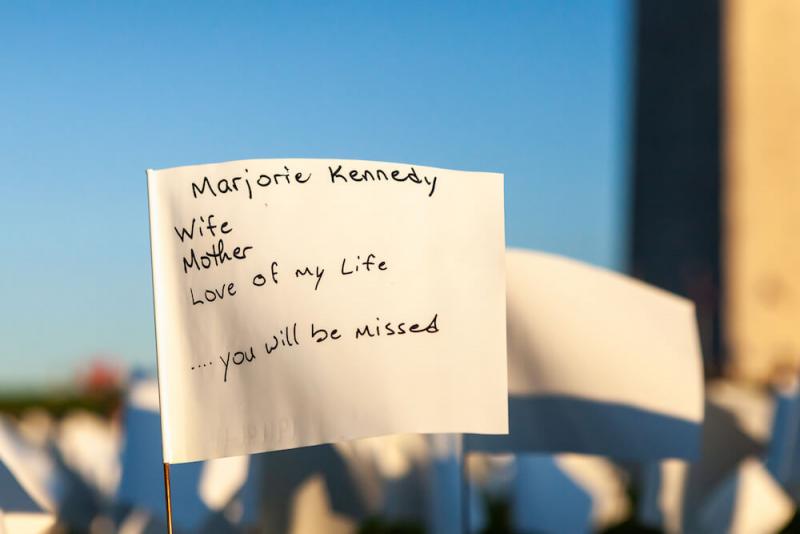 Marjorie Kennedy
Wife
Mother
Love of my Life
....you will be missed